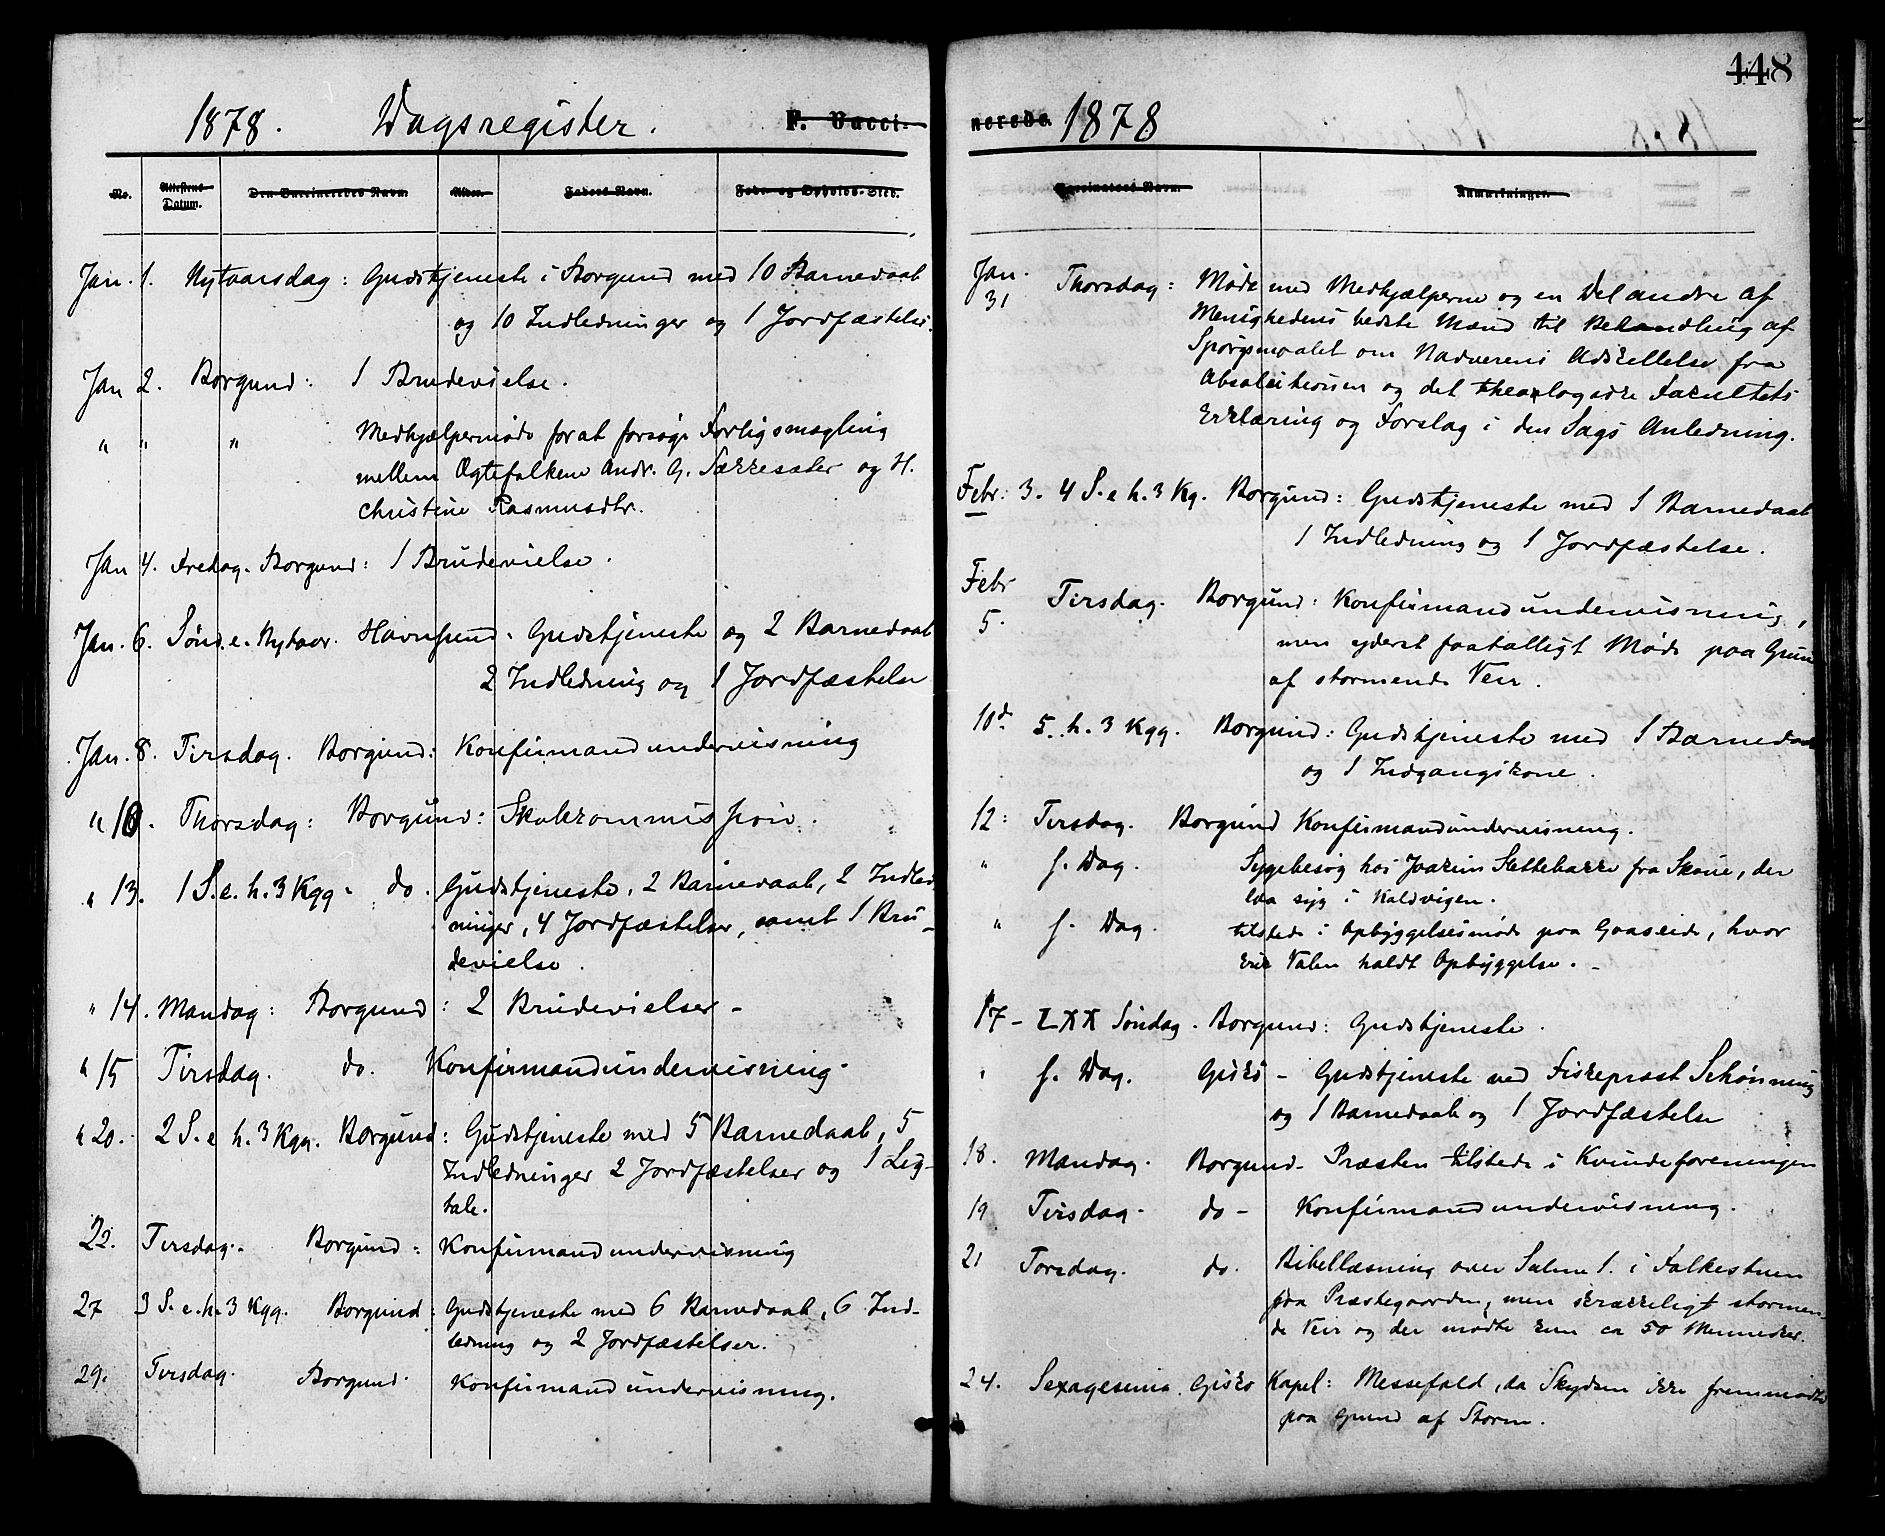 448
1878. Dagsregister. F. Vacci-
No. Attestens Datum. Den Vaccineredes Navn. Alder. Faders Navn. Føde- og Opholds-Sted.
Jan. 1. Nytaarsdag: Gudstjeneste i Borgund med 10 Barnedaab
og 10 Indledninger og 1 Jordfæstelse.
Jan 2. Borgund: 1 Brudevielse.
" " " Medhjælpermøde forat forsøge Forligsmægling
mellem Ægtefolkene Andr. G. Sækkesæter og H.
Christine Rasmusdtr.
Jan 4. Fredag. Borgund: 1 Brudevielse.
Jan. 6. Sønd. e. Nytaar. Havnsund. Gudstjeneste og 2 Barnedaab
2 Indledning og 1 Jordfæstelse
Jan. 8. Tirsdag. Borgund: Konfirmandundervisning
" 10. Thorsdag: Borgund: Skolekommission.
" 13. 1 S. e. h. 3 Kgg. do. Gudstjeneste, 2 Barnedaab, 2 Indled
ninger, 4 Jordfæstelser, samt 1 Bru-
devielse.
" 14. Mandag: Borgund: 2 Brudevielser -
" 15 Tirsdag. do. Konfirmandundervisning.
" 20. 2 S. e h. 3 Kgg. Borgund: Gudstjeneste med 5 Barnedaab, 5
Indledninger 2 Jordfæstelser og 1 Lig-
tale.
22. Tirsdag. Borgund: Konfirmandundervisning
27 3 S. e. h. 3 Kgg. Borgund: Gudstjeneste med 6 Barnedaab, 6 Ind-
ledning og 2 Jordfæstelser.
29. Tirsdag. Borgund. Konfirmandundervisning.
nerede. 1878
Vaccinators Navn. Anmærkninger.
Jan. 31 Thorsdag: Møde med Medhjælperne og en Del andre af
Menighedens bedste Mænd til Behandling af
Spørgsmaalet om Nadverens Adskillelse fra
Absolutionen og det theologiske Facultets
Erklæring og Forslag i den Sags Anledning.
Febr. 3. 4 S. e h. 3 Kg. Borgund: Gudstjeneste med 1 Barnedaab
1 Indledning og 1 Jordfæstelse.
Febr 5. Tirsdag. Borgund: Konfirmandundervisning,
men yderst faatalligt Møde paa Grund
af stormende Veir.
10d. 5. h. 3 Kgg. Borgund: Gudstjeneste med 1 Barnedaab
og 1 Indgangskone.
12: Tirsdag. Borgund Konfirmandundervisning.
" s. Dag. Sygebesøg hos Joakim Slettebakke fra Skoue, der
laa syg i Kaldvigen.
" s. Dag. tilstede i Opbyggelsesmøde paa Gaaseide, hvor
Erik Valen holdt Opbyggelse. -
17 - LXX Søndag. Borgund: Gudstjeneste.
" s. Dag. Giske - Gudstjeneste ved Fiskeprest Schønning
og 1 Barnedaab og 1 Jordfæstelse
18. Mandag. Borgund - Præsten tilstede i Kvindeforeningen
19 Tirsdag. do - Konfirmandundervisning.
21 Torsdag. do. Bibellæsning over Salme 1. i Folkestuen
paa Præstegaarden, men skrækkeligt stormen-
de Veir og der mødte kun ca 50 Mennesker.
24. Sexagesima. Giske Kapel: Messefald, da Skydsen ikke fremmødte
paa Grund af Storm.